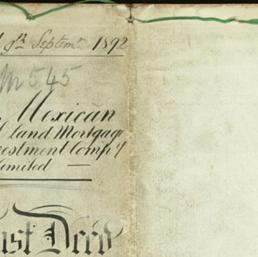 9th Septem 1892
M 545
Mexican
Land Mortgage
estment Comp'y
imited —
ust Deed